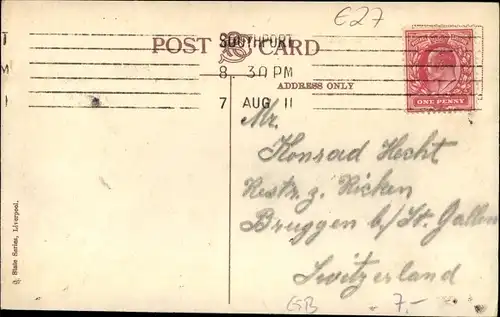 €27
POST CARD
SOUTHPORT
8. 30 PM
7 AUG 11
ADDRESS ONLY
ONE PENNY
Mr.
Konrad Hecht
Restr. z. Ricken
Bruggen b/ St. Gallen
Switzerland
State Series, Liverpool.
GB 7.-